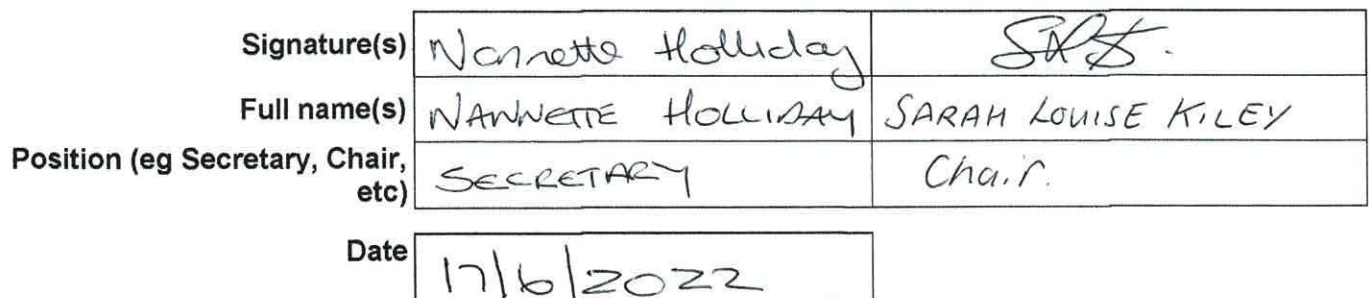 Signature(s) Nannette Holliday
Full name(s) NANNETTE HOLLIDAY SARAH LOUISE KILEY
Position (eg Secretary, Chair, etc) SECRETARY Chair.
Date 17/6/2022